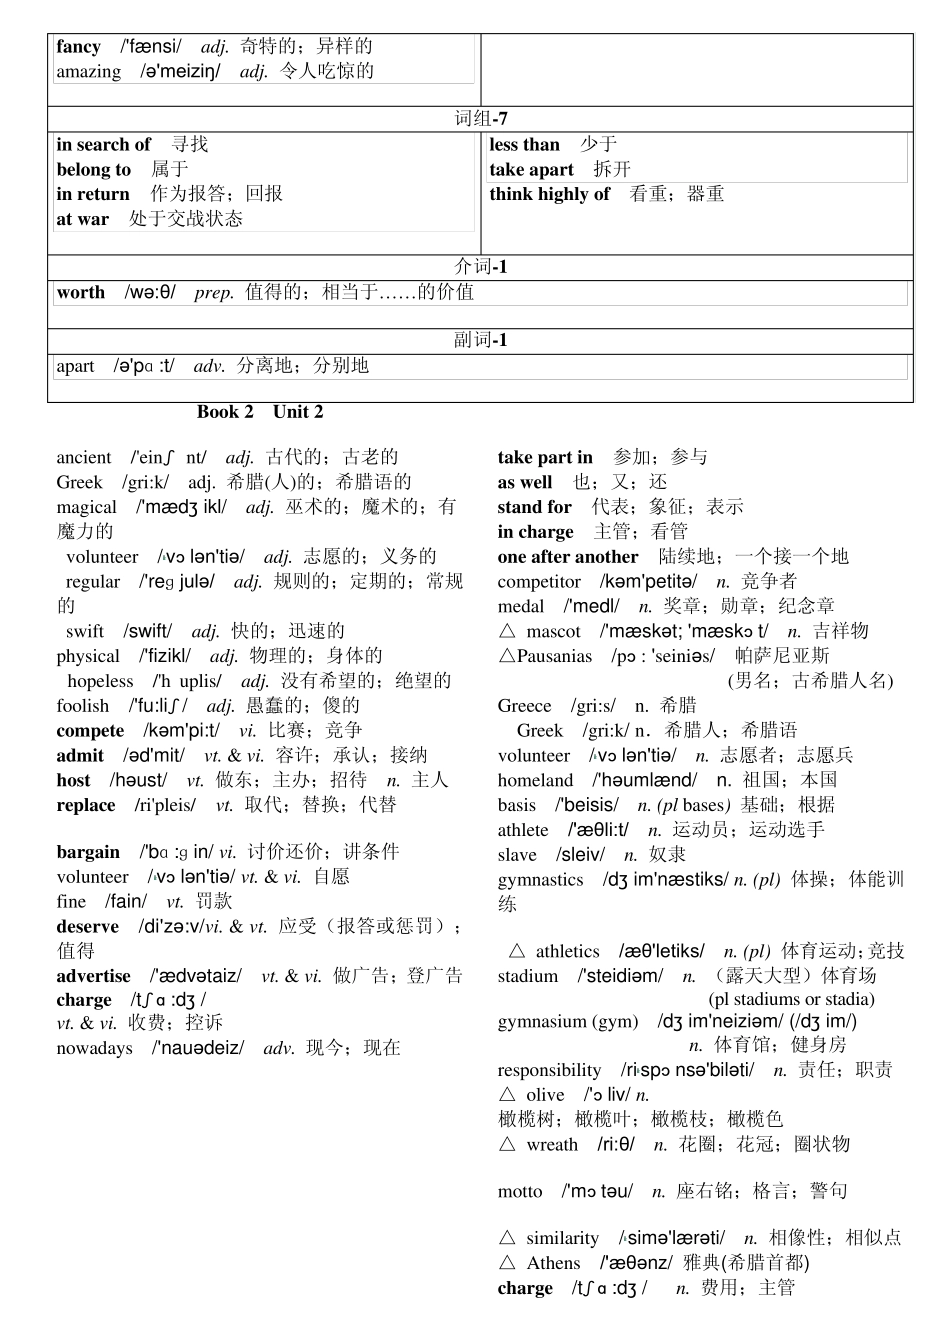 fancy /'fænsi/ adj. 奇特的；异样的
amazing /ə'meiziŋ/ adj. 令人吃惊的
词组-7
in search of 寻找
belong to 属于
in return 作为报答；回报
at war 处于交战状态
less than 少于
take apart 拆开
think highly of 看重；器重
介词-1
worth /wə:θ/ prep. 值得的；相当于……的价值
副词-1
apart /ə'pɑ :t/ adv. 分离地；分别地
Book 2 Unit 2
ancient /'einʃ nt/ adj. 古代的；古老的
Greek /gri:k/ adj. 希腊(人)的；希腊语的
magical /'mædʒ ikl/ adj. 巫术的；魔术的；有
魔力的
volunteer /ˌvɔ lən'tiə/ adj. 志愿的；义务的
regular /'reɡ julə/ adj. 规则的；定期的；常规
的
swift /swift/ adj. 快的；迅速的
physical /'fizikl/ adj. 物理的；身体的
hopeless /'h uplis/ adj. 没有希望的；绝望的
foolish /'fu:liʃ / adj. 愚蠢的；傻的
compete /kəm'pi:t/ vi. 比赛；竞争
admit /əd'mit/ vt. & vi. 容许；承认；接纳
host /həust/ vt. 做东；主办；招待 n. 主人
replace /ri'pleis/ vt. 取代；替换；代替
bargain /'bɑ :ɡ in/ vi. 讨价还价；讲条件
volunteer /ˌvɔ lən'tiə/ vt. & vi. 自愿
fine /fain/ vt. 罚款
deserve /di'zə:v/vi. & vt. 应受（报答或惩罚）；
值得
advertise /'ædvətaiz/ vt. & vi. 做广告；登广告
charge /tʃ ɑ :dʒ /
vt. & vi. 收费；控诉
nowadays /'nauədeiz/ adv. 现今；现在
take part in 参加；参与
as well 也；又；还
stand for 代表；象征；表示
in charge 主管；看管
one after another 陆续地；一个接一个地
competitor /kəm'petitə/ n. 竞争者
medal /'medl/ n. 奖章；勋章；纪念章
△ mascot /'mæskət; 'mæskɔ t/ n. 吉祥物
△Pausanias /pɔ : 'seiniəs/ 帕萨尼亚斯
(男名；古希腊人名)
Greece /gri:s/ n. 希腊
Greek /gri:k/ n．希腊人；希腊语
volunteer /ˌvɔ lən'tiə/ n. 志愿者；志愿兵
homeland /'həumlænd/ n. 祖国；本国
basis /'beisis/ n. (pl bases) 基础；根据
athlete /'æθli:t/ n. 运动员；运动选手
slave /sleiv/ n. 奴隶
gymnastics /dʒ im'næstiks/ n. (pl) 体操；体能训
练
△ athletics /æθ'letiks/ n. (pl) 体育运动；竞技
stadium /'steidiəm/ n. （露天大型）体育场
(pl stadiums or stadia)
gymnasium (gym) /dʒ im'neiziəm/ (/dʒ im/)
n. 体育馆；健身房
responsibility /riˌspɔ nsə'biləti/ n. 责任；职责
△ olive /'ɔ liv/ n.
橄榄树；橄榄叶；橄榄枝；橄榄色
△ wreath /ri:θ/ n. 花圈；花冠；圈状物
motto /'mɔ təu/ n. 座右铭；格言；警句
△ similarity /ˌsimə'lærəti/ n. 相像性；相似点
△ Athens /'æθənz/ 雅典(希腊首都)
charge /tʃ ɑ :dʒ / n. 费用；主管